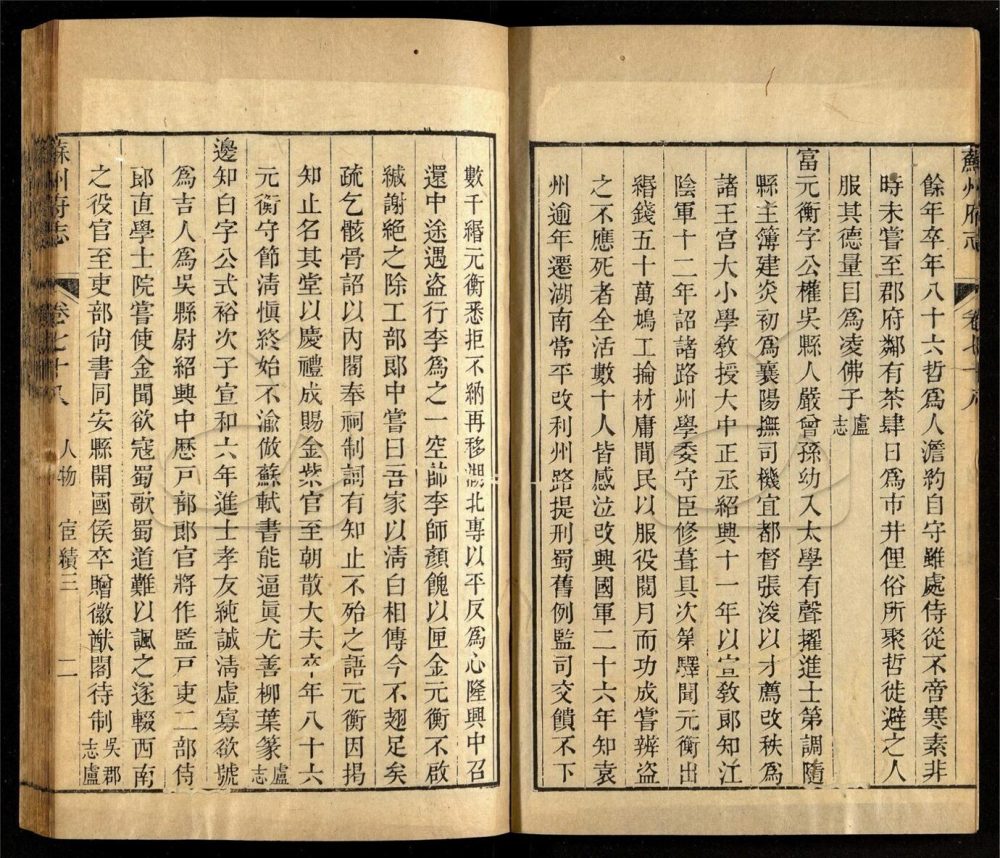 蘇州府志 卷七十八
餘年卒年八十六哲爲人澹約自守雖處侍從不啻寒素非
時未嘗至郡府鄰有茶肆日爲市井俚俗所聚哲徙避之人
服其德量目爲凌佛子盧志
富元衡字公權吳縣人嚴曾孫幼入太學有聲擢進士第調隨
縣主簿建炎初爲襄陽撫司機宜都督張浚以才薦改秩爲
諸王宮大小學敎授大中正丞紹興十一年以宣敎郎知江
陰軍十二年詔諸路州學委守臣修葺具次第驛聞元衡出
緡錢五十萬鳩工掄材庸閒民以服役閱月而功成嘗辨盜
之不應死者全活數十人皆感泣改興國軍二十六年知袁
州逾年遷湖南常平改利州路提刑蜀舊例監司交饋不下
數千緡元衡悉拒不納再移湖北專以平反爲心隆興中召
還中途遇盜行李爲之一空帥李師顏餽以匣金元衡不啟
緘謝絕之除工部郎中嘗曰吾家以淸白相傳今不翅足矣
疏乞骸骨詔以內閣奉祠制詞有知止不殆之語元衡因揭
知止名其堂以慶禮成賜金紫官至朝散大夫卒年八十六
元衡守節淸愼終始不渝倣蘇軾書能逼眞尤善柳葉篆盧志
邊知白字公式裕次子宣和六年進士孝友純誠淸虛寡欲號
爲吉人爲吳縣尉紹興中歷戸部郎官將作監戸吏二部侍
郎直學士院嘗使金聞欲寇蜀歌蜀道難以諷之遂輟西南
之役官至吏部尙書同安縣開國侯卒贈徽猷閣待制吳郡志盧志
蘇州府志 卷七十八 人物 宦績三 二